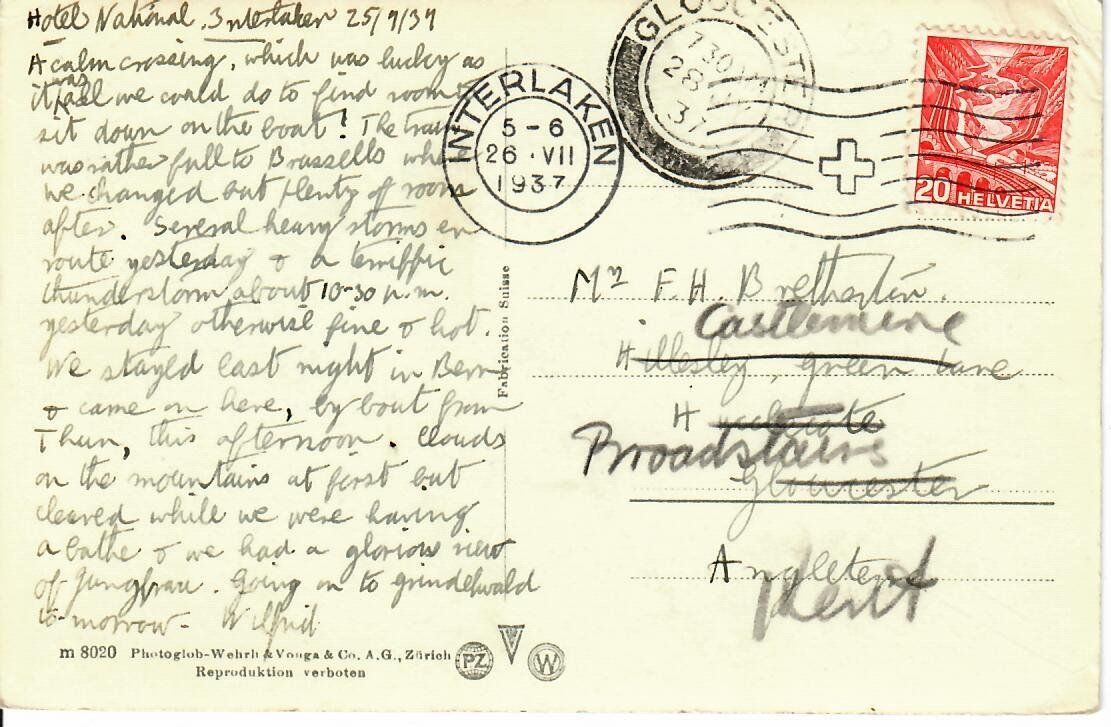 Hotel National. Interlaken 25/7/37
A calm crossing, which was lucky as
it was all we could do to find room to
sit down on the boat! The train
was rather full to Brussells where
we changed but plenty of room
after. Several heavy storms en
route yesterday & a terriffic
thunderstorm about 10-30 p.m.
yesterday otherwise fine & hot.
We stayed last night in Bern
& came on here, by boat from
Thun, this afternoon. Clouds
on the mountains at first but
cleared while we were having
a bathe & we had a glorious view
of Jungfrau. Going on to Grindelwald
to-morrow - Wilfrid
m 8020 Photoglob-Wehrli & Vouga & Co. A.G., Zürich
Reproduktion verboten
PZ
W
Fabrication Suisse
INTERLAKEN
5-6
26·VII
1937
GLOUCESTER
730
28
37
20 HELVETIA
Mr F. H. Bretherton.
Castlemere
Hillesley, Green Lane
Hucclecote
Broadstairs
Gloucester
Angleterre
Kent